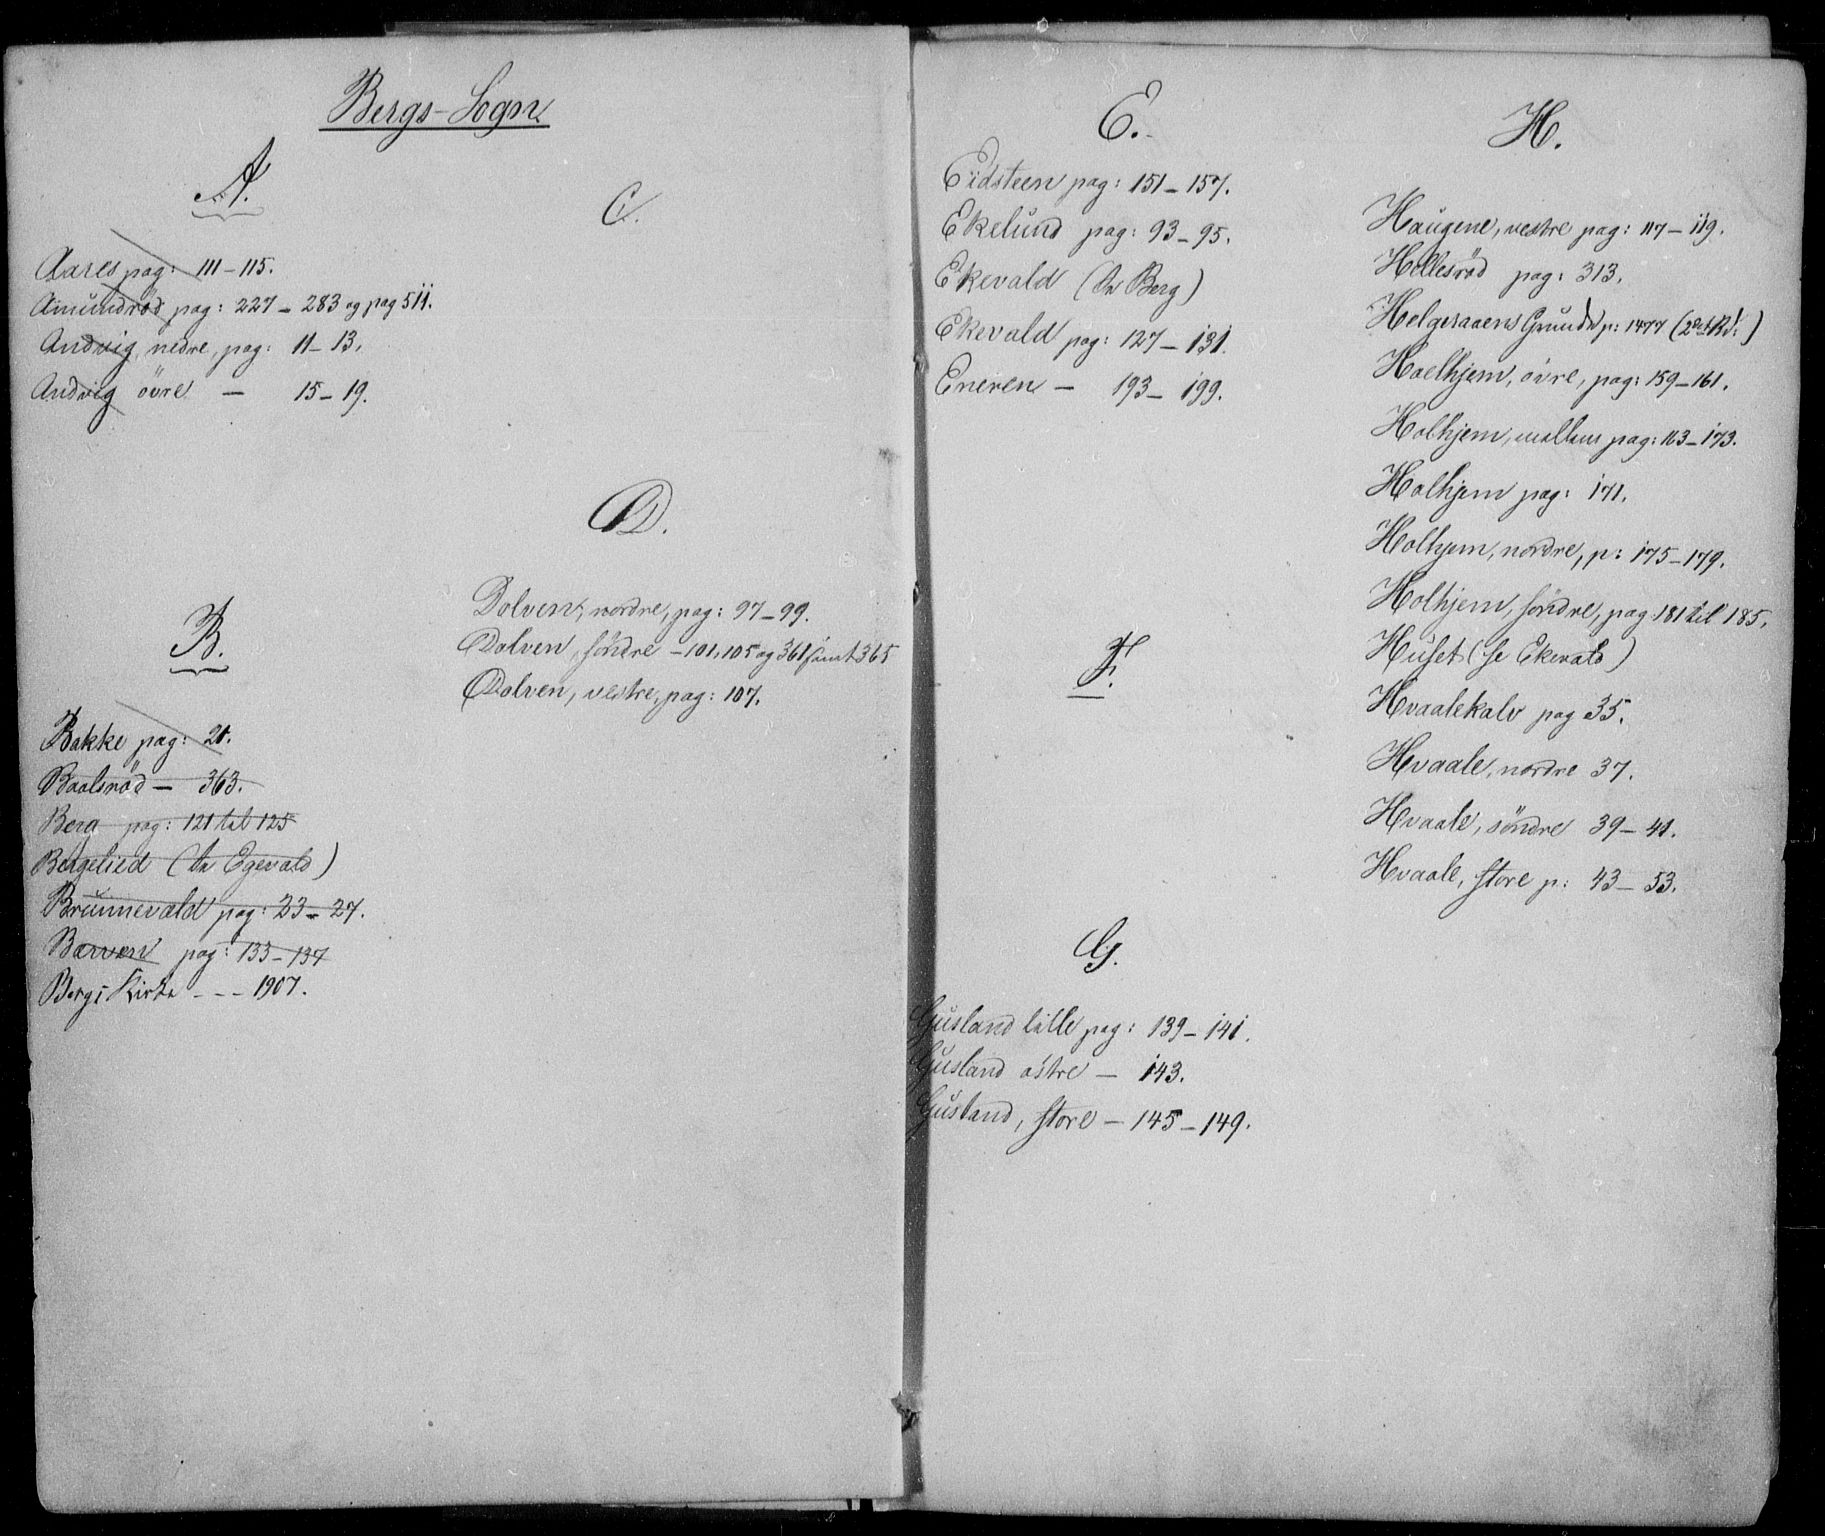 Bergs-Sogn
A.
Aares pag: 111-115.
Amundröd pag: 227-283 og pag 511.
Andvig, nedre, pag: 11-13.
Andvig övre - 15-19.
B.
Bakke pag: 21.
Baalsröd - 363.
Berg pag: 121 til 125
Bergelied (se Egevald)
Brünnevald pag: 23-27.
Barven pag: 133-137
Bergs Kirke - - - 1907.
C.
D.
Dolven, nordre, pag: 97-99.
Dolven, söndre - 101, 105 og 361 samt 365
Dolven, vestre, pag: 107.
E.
Eidsteen pag: 151-157.
Ekelund pag: 93-95.
Ekevald (se Berg)
Ekevald pag: 127-131.
Eneren - 193-199.
F.
G.
Gusland lille pag: 139-141.
Gusland östre - 143.
Gusland, store - 145-149.
H.
Haugene, vestre pag: 117-119.
Hellesröd pag: 313.
Helgeraaens Grund p: 1477 (2det Bd.)
Hoelhjem, övre, pag: 159-161.
Holhjem, mellem pag: 163-173.
Holhjem pag: 171.
Holhjem, nordre, p: 175-179.
Holhjem, söndre, pag. 181 til 185.
Huset (se Ekevald)
Hvaalekalv pag 35.
Hvaale, nordre 37.
Hvaale, söndre 39-41.
Hvaale, store p: 43-53.